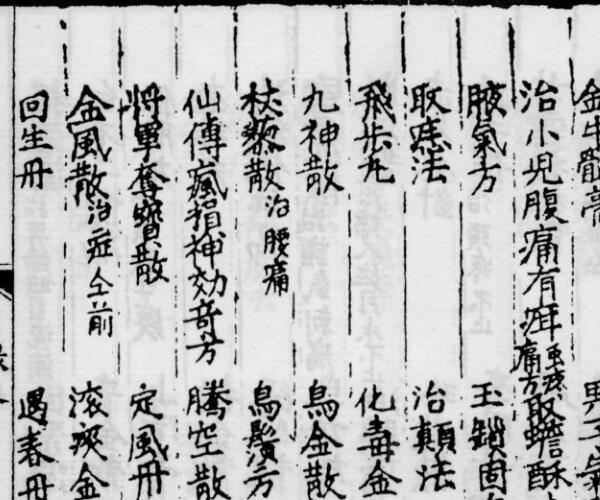 金牛散膏 男子
治小兒腹痛有疳蟲疼痛方 取蟾酥
腋氣方 玉鎖固
取痣法 治顛法
飛步丸 化毒金
九神散 烏金散
杖藜散治腰痛 烏鬚方
仙傳瘋損神効奇方 騰空散
將軍奪寶散 定風丹
金風散治症仝前 滾痰金
回生丹 遇春丹